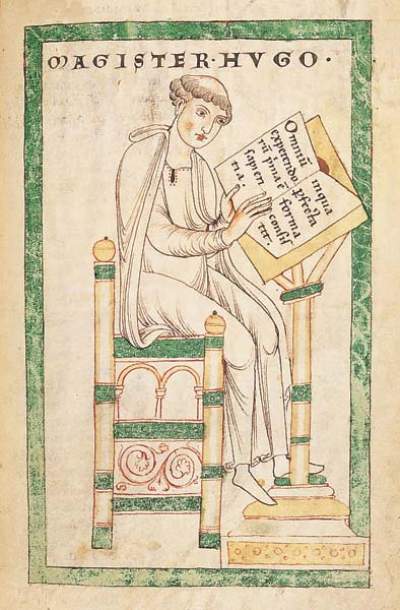 MAGISTER·HVGO·
Omniū
expetendo
rū p'ma ē
sapien
tia·
inqua
ꝑfecta
forma
consis
tit·